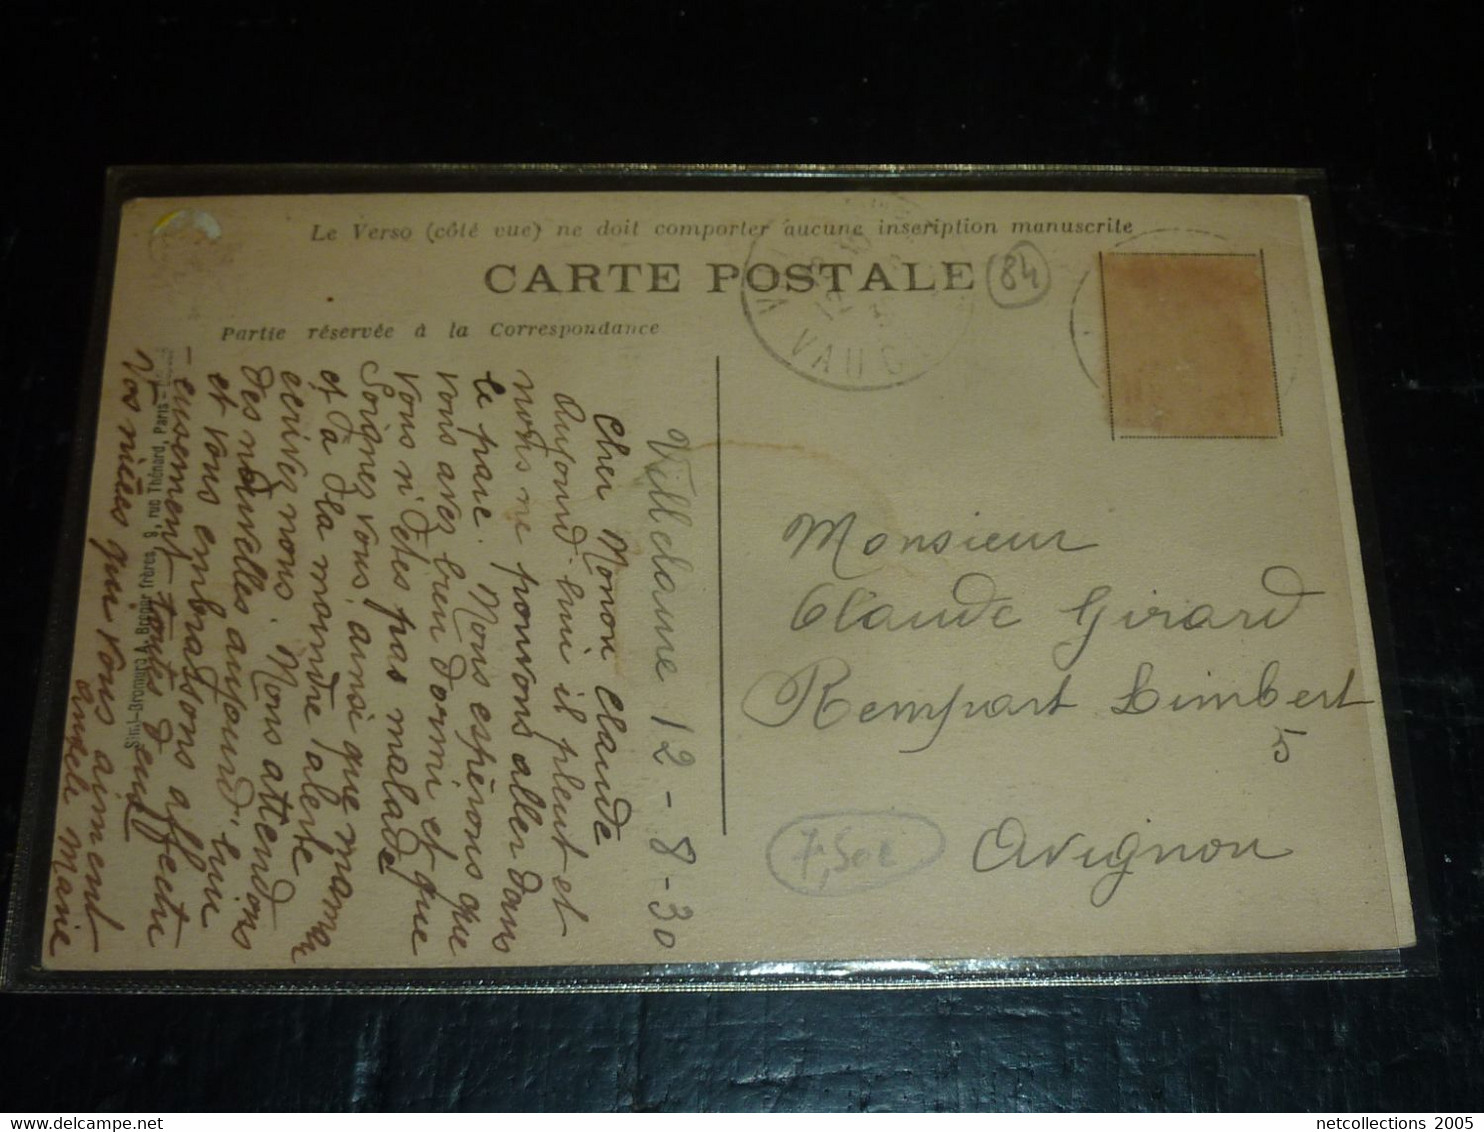 Le Verso (côté vue) ne doit comporter aucune inscription manuscrite
CARTE POSTALE
84
Partie réservée à la Correspondance
VAUC
Villelaure 12-8-30
Cher Monon Claude
Aujourd'hui il pleut et
nous ne pouvons aller dans
le parc. Nous espérons que
vous avez bien dormi et que
vous n'êtes pas malade
Soignez vous, ainsi que maman
et à la moindre alerte
écrivez nous. Nous attendons
des nouvelles aujourd'hui
et vous embrassons affectu
-eusement toutes deux
Vos nièces qui vous aiment
Marie
Monsieur
Claude Girard
Rempart Limbert
5
Avignon
7,50€
A. Breger frères, 9, rue Thénard, Paris
netcollections 2005